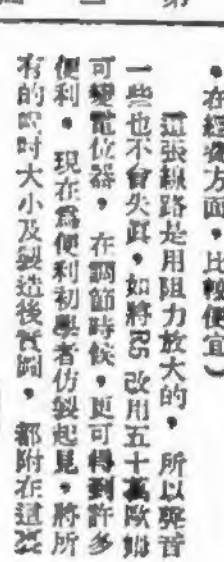 第二
，在經濟方面，比較便宜）
這張線路是用阻力放大的，所以聲音
一些也不會失眞，如將R5改用五十萬歐姆
可變電位器，在調節時候，更可得到許多
便利。現在爲便利初學者仿製起見，將所
有的呎吋大小及製造後質圖，都附在這裝